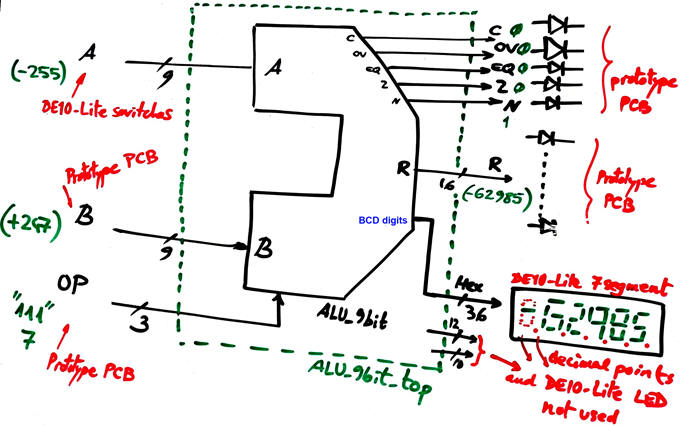 A
(-255)
9
DE10-Lite switches
Prototype PCB
(+247)
B
9
OP
"111"
7
3
Prototype PCB
A
B
C
OV
EQ
Z
N
R
BCD digits
ALU_9bit
ALU_9bit_top
C 0
OV 0
EQ 0
Z 0
N
1
prototype
PCB
16
R
(-62985)
Prototype
PCB
Hex
36
12
DE10-Lite 7segment
-62985
decimal points
and DE10-Lite LED
not used